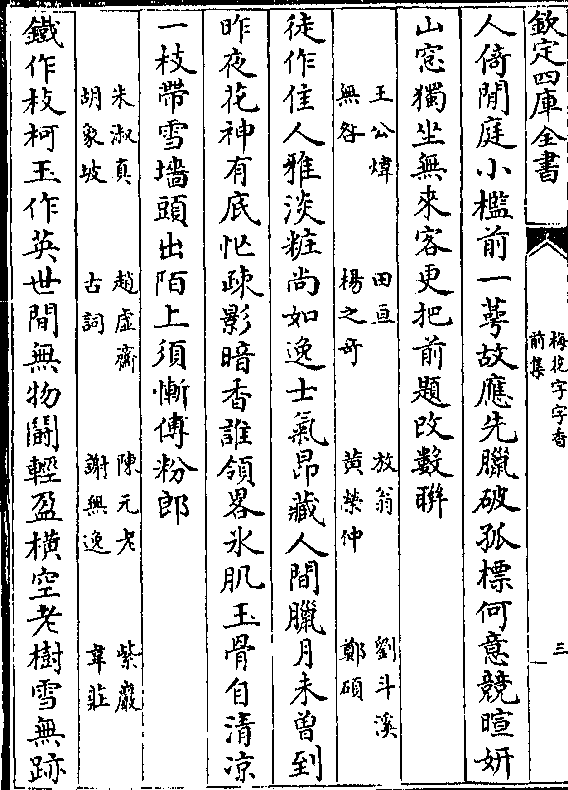 欽定四庫全書
梅花字字香
前集
三
人倚閒庭小檻前一萼故應先臘破孤標何意競暄妍
山窓獨坐無來客更把前題改數聨
王公煒 田亘 放翁 劉斗溪
無咎 楊之奇 黄榮仲 鄭碩
徒作佳人雅淡粧尚如逸士氣昂藏人間臘月未曾到
昨夜花神有底忙疎影暗香誰領畧氷肌玉骨自清凉
一枝帶雪墻頭出陌上須慚傅粉郎
朱淑真 趙虛齋 陳元老 紫巖
胡象坡 古詞 謝無逸 韋莊
鐵作枝柯玉作英世間無物鬭輕盈橫空老樹雪無跡